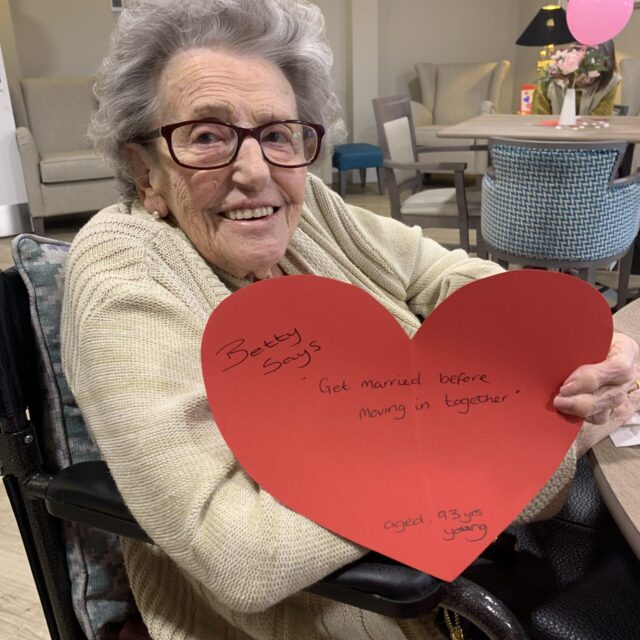 Betty
Says
"Get married before
moving in together"
aged: 93yrs
young